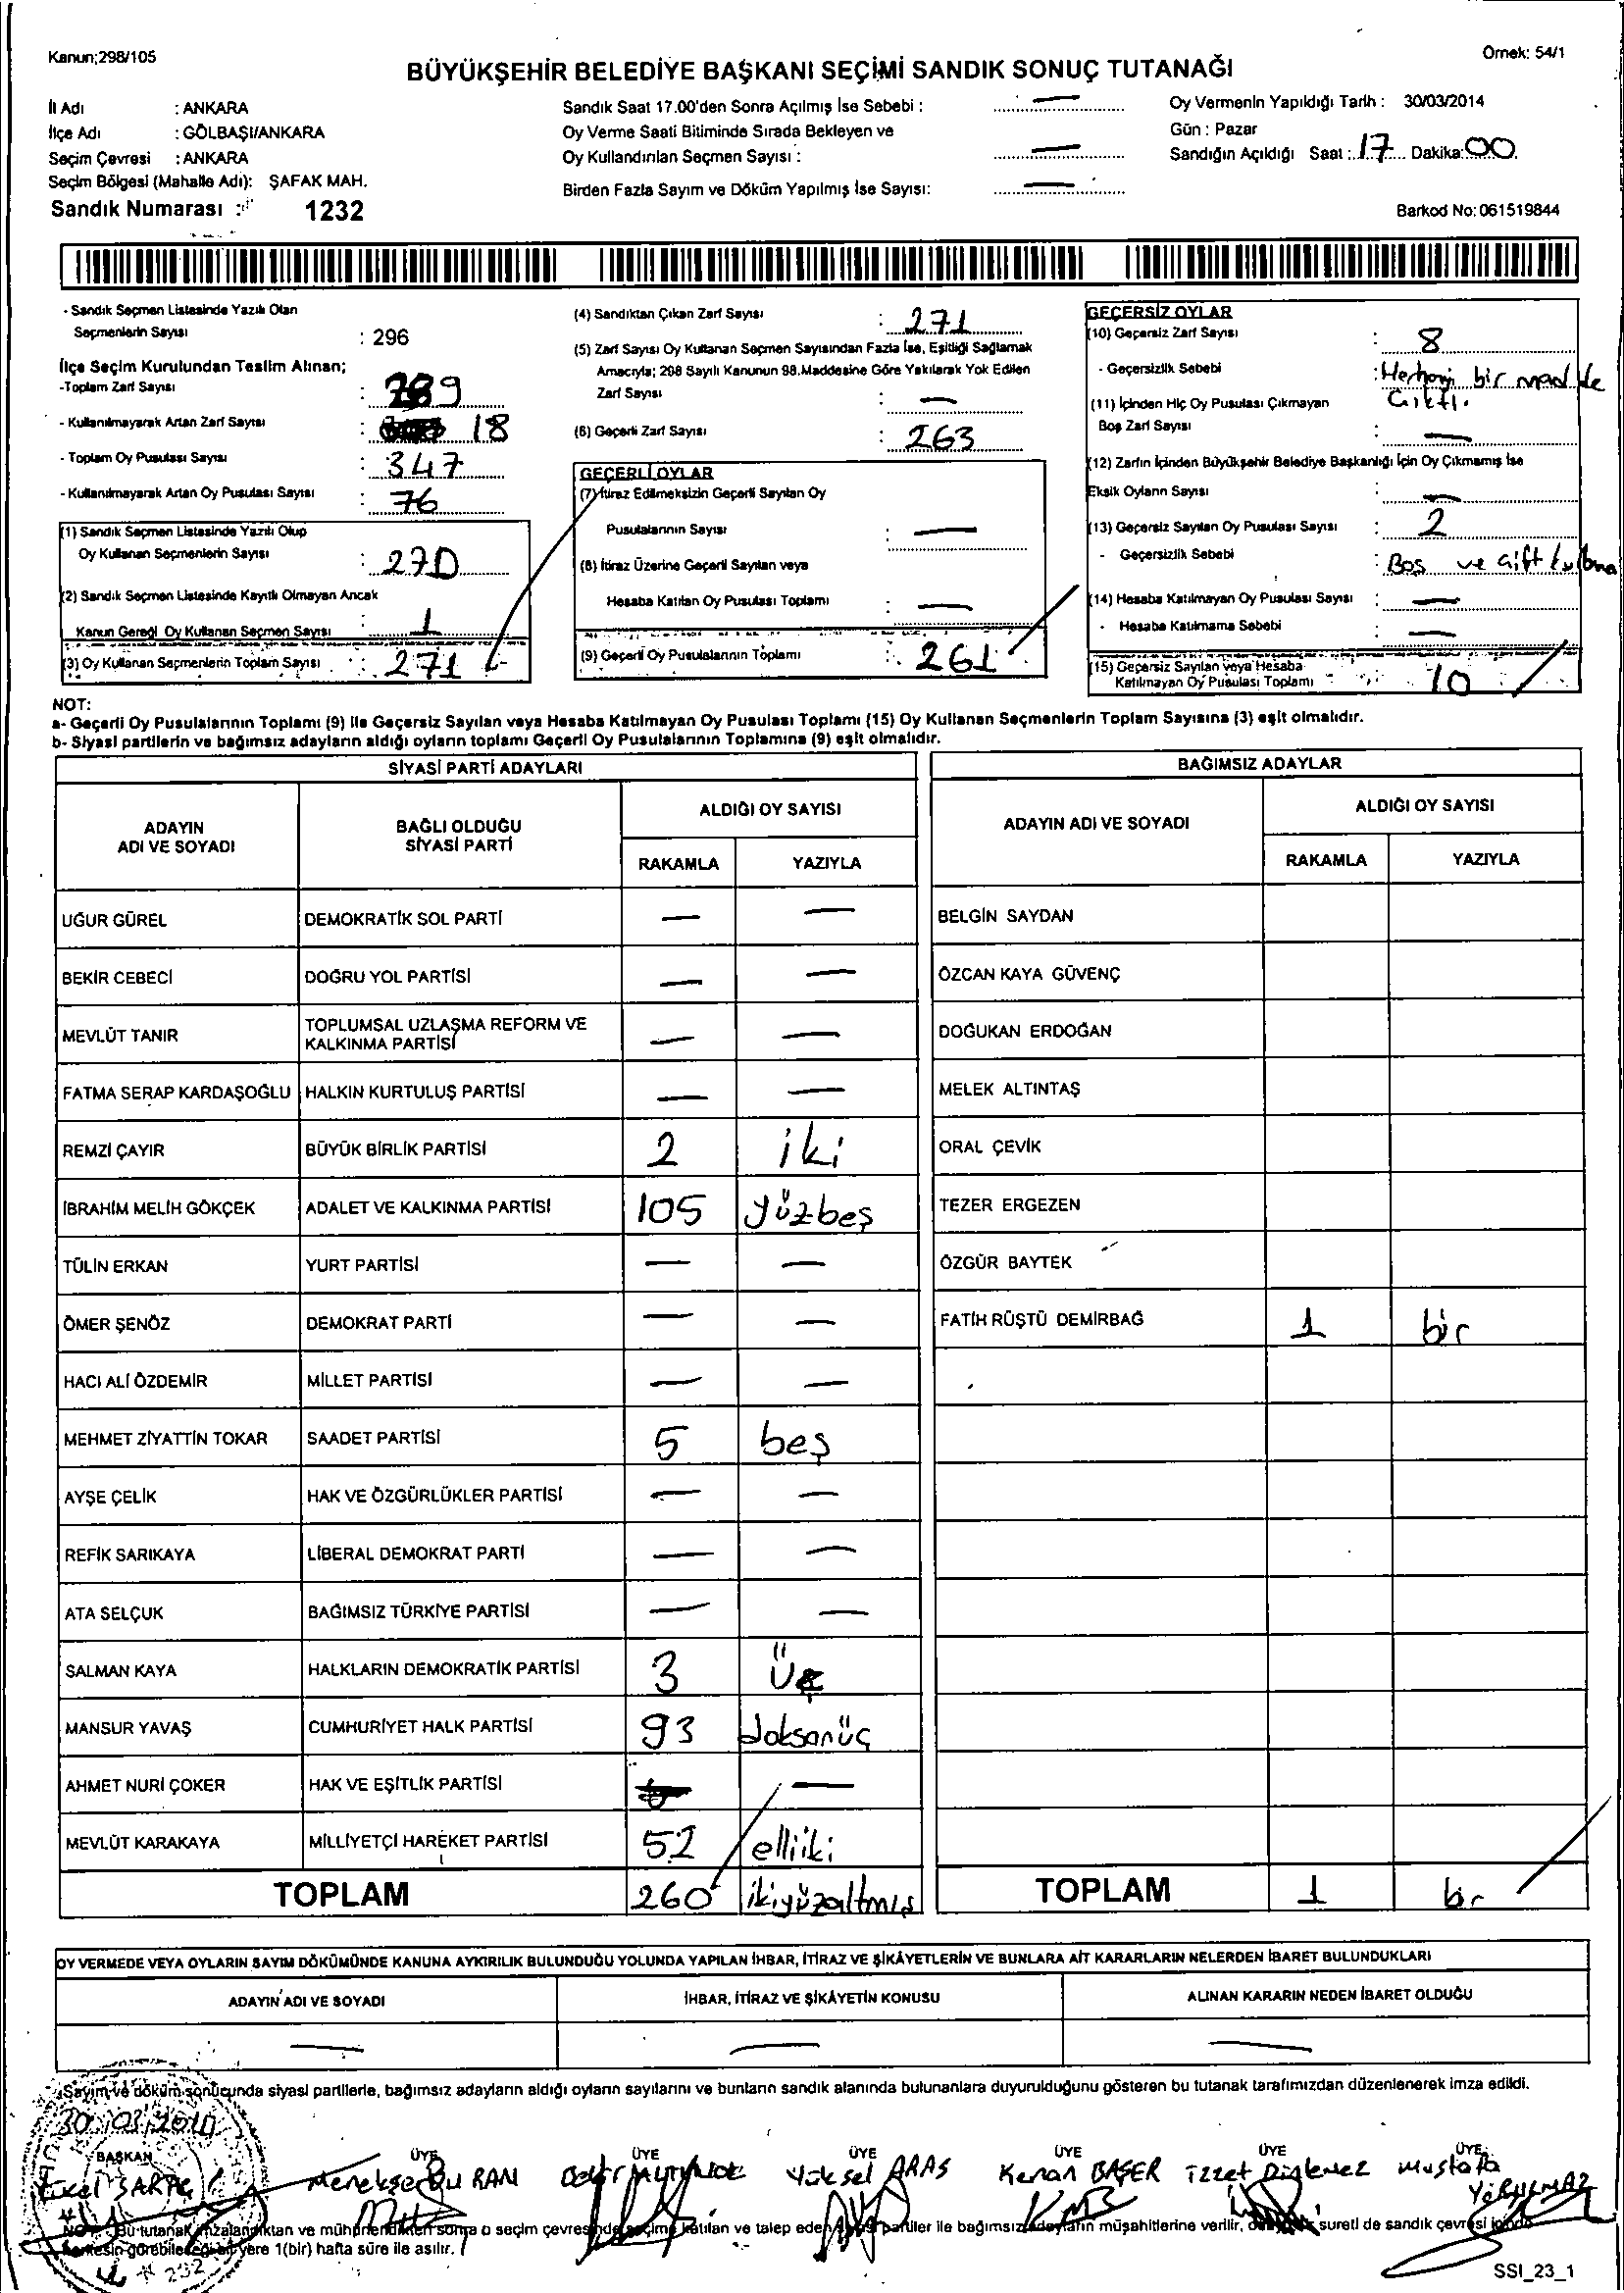 Kanun;298/105
Örnek: 54/1
BÜYÜKŞEHİR BELEDİYE BAŞKANI SEÇİMİ SANDIK SONUÇ TUTANAĞI
İl Adı : ANKARA
İlçe Adı : GÖLBAŞI/ANKARA
Seçim Çevresi : ANKARA
Seçim Bölgesi (Mahalle Adı): ŞAFAK MAH.
Sandık Numarası : 1232
Sandık Saat 17.00'den Sonra Açılmış İse Sebebi : —
Oy Verme Saati Bitiminde Sırada Bekleyen ve
Oy Kullandırılan Seçmen Sayısı : —
Birden Fazla Sayım ve Döküm Yapılmış İse Sayısı: —
Oy Vermenin Yapıldığı Tarih : 30/03/2014
Gün : Pazar
Sandığın Açıldığı Saat : 17 Dakika: 00
Barkod No: 061519844
- Sandık Seçmen Listesinde Yazılı Olan
Seçmenlerin Sayısı : 296
İlçe Seçim Kurulundan Teslim Alınan;
-Toplam Zarf Sayısı : 289
- Kullanılmayarak Artan Zarf Sayısı : 18
- Toplam Oy Pusulası Sayısı : 347
- Kullanılmayarak Artan Oy Pusulası Sayısı : 76
(1) Sandık Seçmen Listesinde Yazılı Olup
Oy Kullanan Seçmenlerin Sayısı : 270
(2) Sandık Seçmen Listesinde Kayıtlı Olmayan Ancak
Kanun Gereği Oy Kullanan Seçmen Sayısı : 1
(3) Oy Kullanan Seçmenlerin Toplam Sayısı : 271
(4) Sandıktan Çıkan Zarf Sayısı : 271
(5) Zarf Sayısı Oy Kullanan Seçmen Sayısından Fazla İse, Eşitliği Sağlamak
Amacıyla; 298 Sayılı Kanunun 98.Maddesine Göre Yakılarak Yok Edilen
Zarf Sayısı : —
(6) Geçerli Zarf Sayısı : 263
GEÇERLİ OYLAR
(7) İtiraz Edilmeksizin Geçerli Sayılan Oy
Pusulalarının Sayısı : —
(8) İtiraz Üzerine Geçerli Sayılan veya
Hesaba Katılan Oy Pusulası Toplamı : —
(9) Geçerli Oy Pusulalarının Toplamı : 261
GEÇERSİZ OYLAR
(10) Geçersiz Zarf Sayısı : 8
- Geçersizlik Sebebi : bir
Çıktı.
(11) İçinden Hiç Oy Pusulası Çıkmayan
Boş Zarf Sayısı : —
(12) Zarfın İçinden Büyükşehir Belediye Başkanlığı İçin Oy Çıkmamış İse
Eksik Oyların Sayısı : —
(13) Geçersiz Sayılan Oy Pusulası Sayısı : 2
- Geçersizlik Sebebi : Boş ve çift
(14) Hesaba Katılmayan Oy Pusulası Sayısı : —
- Hesaba Katılmama Sebebi : —
(15) Geçersiz Sayılan veya Hesaba
Katılmayan Oy Pusulası Toplamı : 10
NOT:
a- Geçerli Oy Pusulalarının Toplamı (9) ile Geçersiz Sayılan veya Hesaba Katılmayan Oy Pusulası Toplamı (15) Oy Kullanan Seçmenlerin Toplam Sayısına (3) eşit olmalıdır.
b- Siyasi partilerin ve bağımsız adayların aldığı oyların toplamı Geçerli Oy Pusulalarının Toplamına (9) eşit olmalıdır.
SİYASİ PARTİ ADAYLARI
ADAYIN ADI VE SOYADI BAĞLI OLDUĞU SİYASİ PARTİ ALDIĞI OY SAYISI
RAKAMLA YAZIYLA
UĞUR GÜREL DEMOKRATİK SOL PARTİ — —
BEKİR CEBECİ DOĞRU YOL PARTİSİ — —
MEVLÜT TANIR TOPLUMSAL UZLAŞMA REFORM VE KALKINMA PARTİSİ — —
FATMA SERAP KARDAŞOĞLU HALKIN KURTULUŞ PARTİSİ — —
REMZİ ÇAYIR BÜYÜK BİRLİK PARTİSİ 2 iki
İBRAHİM MELİH GÖKÇEK ADALET VE KALKINMA PARTİSİ 105 yüzbeş
TÜLİN ERKAN YURT PARTİSİ — —
ÖMER ŞENÖZ DEMOKRAT PARTİ — —
HACI ALİ ÖZDEMİR MİLLET PARTİSİ — —
MEHMET ZİYATTİN TOKAR SAADET PARTİSİ 5 beş
AYŞE ÇELİK HAK VE ÖZGÜRLÜKLER PARTİSİ — —
REFİK SARIKAYA LİBERAL DEMOKRAT PARTİ — —
ATA SELÇUK BAĞIMSIZ TÜRKİYE PARTİSİ — —
SALMAN KAYA HALKLARIN DEMOKRATİK PARTİSİ 3 Üç
MANSUR YAVAŞ CUMHURİYET HALK PARTİSİ 93 doksanüç
AHMET NURİ ÇOKER HAK VE EŞİTLİK PARTİSİ —
MEVLÜT KARAKAYA MİLLİYETÇİ HAREKET PARTİSİ 52 elliiki
TOPLAM 260 ikiyüzaltmış
BAĞIMSIZ ADAYLAR
ADAYIN ADI VE SOYADI ALDIĞI OY SAYISI
RAKAMLA YAZIYLA
BELGİN SAYDAN
ÖZCAN KAYA GÜVENÇ
DOĞUKAN ERDOĞAN
MELEK ALTINTAŞ
ORAL ÇEVİK
TEZER ERGEZEN
ÖZGÜR BAYTEK
FATİH RÜŞTÜ DEMİRBAĞ 1 bir
TOPLAM 1 bir
OY VERMEDE VEYA OYLARIN SAYIM DÖKÜMÜNDE KANUNA AYKIRILIK BULUNDUĞU YOLUNDA YAPILAN İHBAR, İTİRAZ VE ŞİKÂYETLERİN VE BUNLARA AİT KARARLARIN NELERDEN İBARET BULUNDUKLARI
ADAYIN ADI VE SOYADI İHBAR, İTİRAZ VE ŞİKÂYETİN KONUSU ALINAN KARARIN NEDEN İBARET OLDUĞU
— — —
Sayım ve döküm sonucunda siyasi partilerle, bağımsız adayların aldığı oyların sayılarını ve bunların sandık alanında bulunanlara duyurulduğunu gösteren bu tutanak tarafımızdan düzenlenerek imza edildi.
30.03.2014
BAŞKAN ÜYE ÜYE ÜYE ÜYE ÜYE ÜYE
Yüksel ARAS Kenan BAŞER İzzet Mustafa
YORULMAZ
NOT : Bu tutanak imzalandıktan ve mühürlendikten sonra o seçim çevresinde seçime katılan ve talep eden siyasi partiler ile bağımsız adayların müşahitlerine verilir, sureti de sandık çevresi içinde
herkesin görebileceği bir yere 1(bir) hafta süre ile asılır.
SSI_23_1